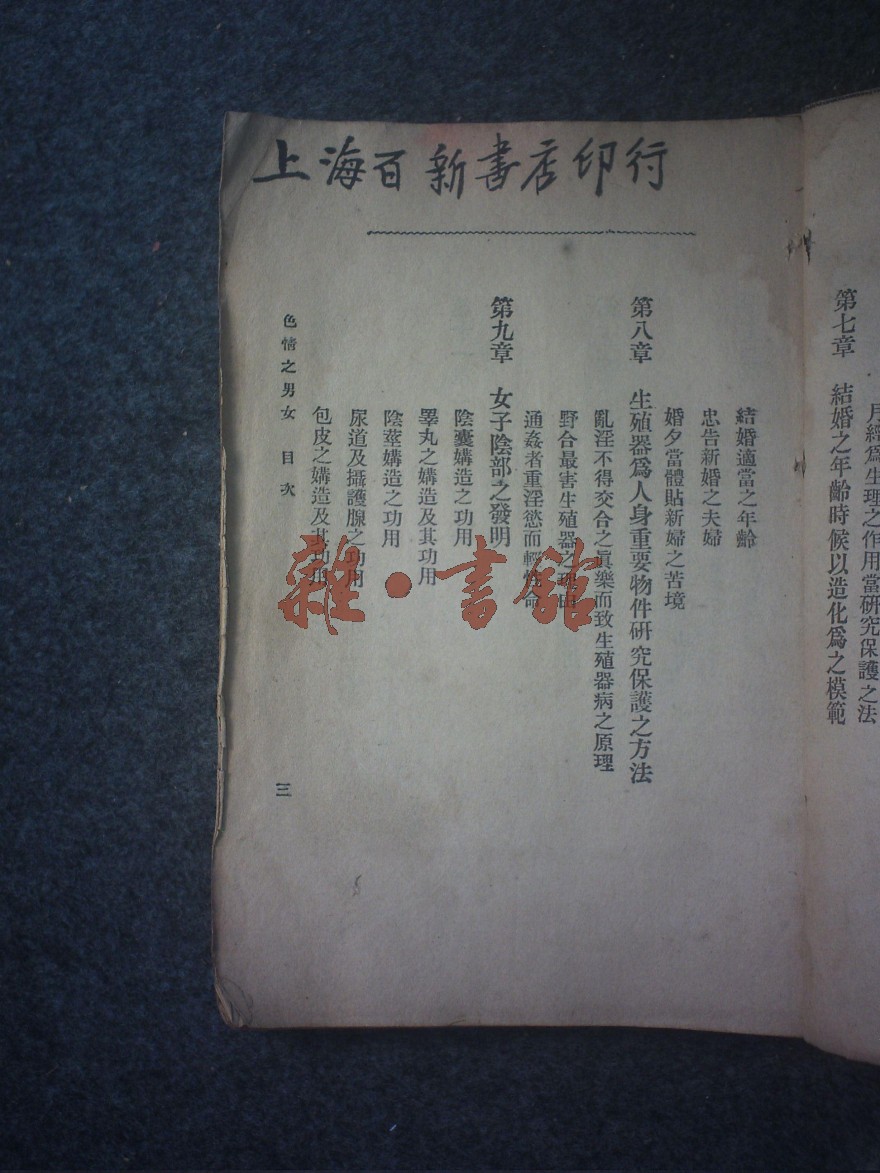 上海百新書店印行
月經爲生理之作用當研究保護之法
第七章　結婚之年齡時候以造化爲之模範
結婚適當之年齡
忠告新婚之夫婦
婚夕當體貼新婦之苦境
第八章　生殖器爲人身重要物件研究保護之方法
亂淫不得交合之眞樂而致生殖器病之原理
野合最害生殖器之理由
通姦者重淫慾而輕性命
第九章　女子陰部之發明
陰囊媾造之功用
睪丸之媾造及其功用
陰莖媾造之功用
尿道及攝護腺之功用
包皮之媾造及其功用
色情之男女　目次
三
雜·書館